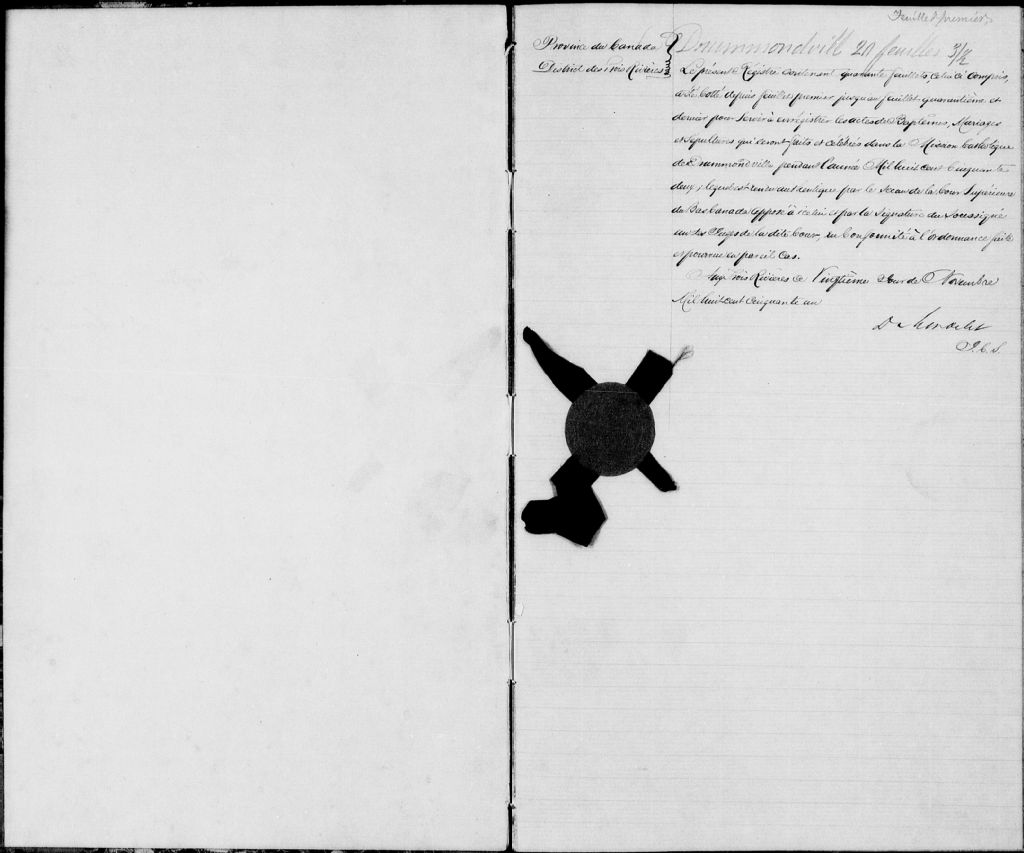 Feuillet premier
Province du Canada
District des Trois Rivières
Drummondvill 20 feuilles 3/2
Le présent Registre contenant quarante feuillets, celui ci compris,
a été cotté depuis feuillet premier jusqu'au feuillet quarantième et
dernier pour servir à enrégistrer les actes de Baptêmes, Mariages
et Sépultures qui seront faits et célébrés dans la Mission Catholique
de Drummondville pendant l'année Mil huit cent Cinquante
deux; lequel est rendu authentique par le Sceau de la Cour Supérieure
du Bas Canada apposé à icelui et par la Signature du Soussigné
un des Juges de la dite Cour, en Conformité à l'ordonnance faite
et pourvue en pareil Cas.
Aux Trois Rivières ce Vingtième Jour de Novembre
Mil huit cent Cinquante un
D Mondelet
J. C. S.